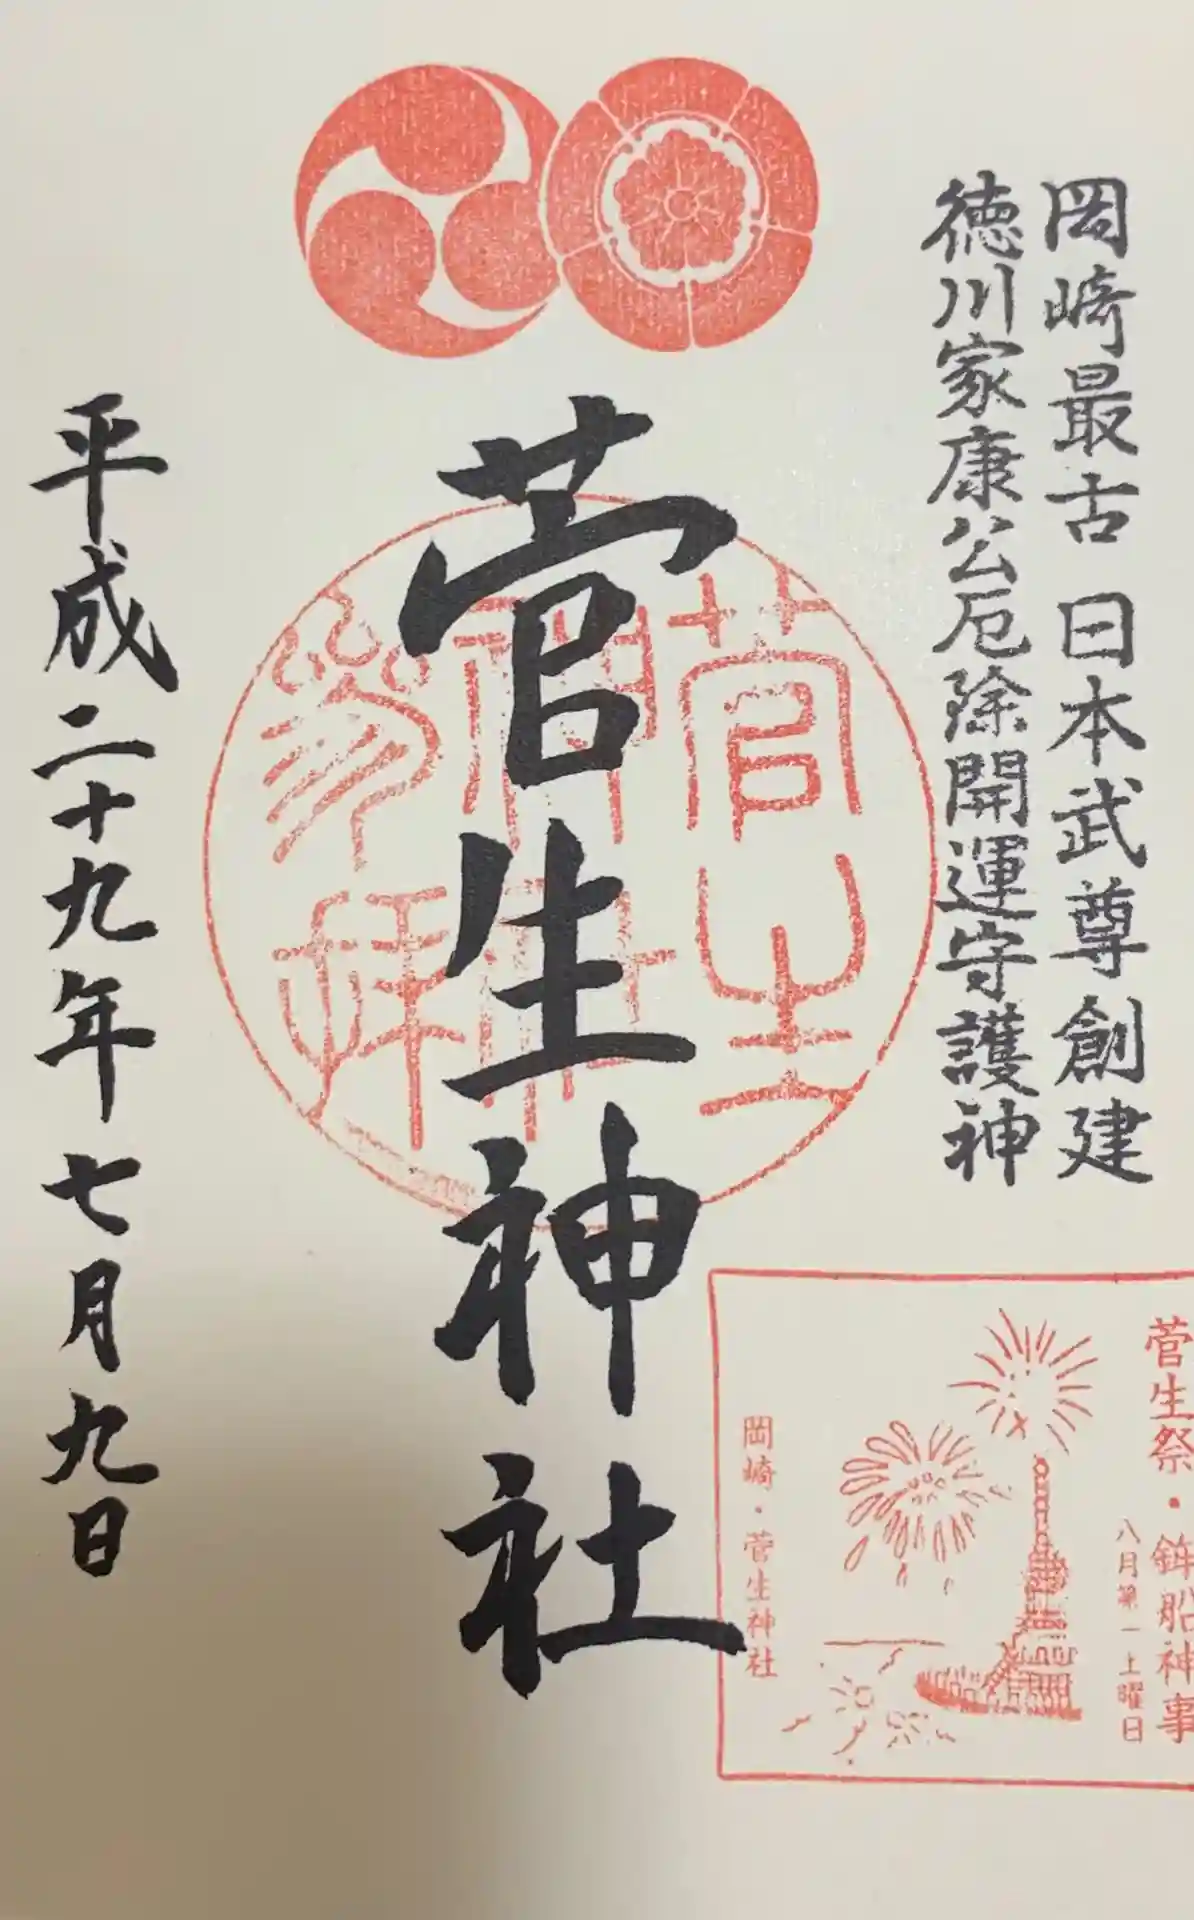 岡崎最古 日本武尊創建
徳川家康公厄除開運守護神
菅生神社
菅生神社參拝
平成二十九年 七月九日
菅生祭・鉾船神事
八月第一土曜日
岡崎・菅生神社